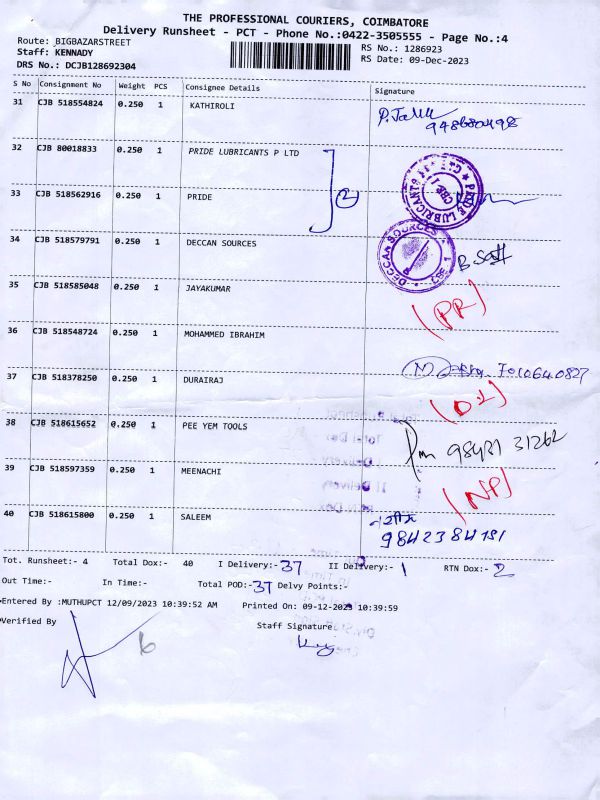 THE PROFESSIONAL COURIERS, COIMBATORE
Delivery Runsheet - PCT - Phone No.:0422-3505555 - Page No.:4
Route: BIGBAZARSTREET
Staff: KENNADY
DRS No.: DCJB128692304
RS No.: 1286923
RS Date: 09-Dec-2023
S No Consignment No Weight PCS Consignee Details Signature
31 CJB 518554824 0.250 1 KATHIROLI
32 CJB 80018833 0.250 1 PRIDE LUBRICANTS P LTD
2
33 CJB 518562916 0.250 1 PRIDE
PRIDE LUBRICANTS CBE 1
34 CJB 518579791 0.250 1 DECCAN SOURCES
DECCAN SOURCES CBE 1
35 CJB 518585048 0.250 1 JAYAKUMAR (PR)
36 CJB 518548724 0.250 1 MOHAMMED IBRAHIM
37 CJB 518378250 0.250 1 DURAIRAJ
38 CJB 518615652 0.250 1 PEE YEM TOOLS
39 CJB 518597359 0.250 1 MEENACHI (NP)
40 CJB 518615800 0.250 1 SALEEM
9842384191
Tot. Runsheet:- 4 Total Dox:- 40 I Delivery:- 37 II Delivery:- 1 RTN Dox:- 2
Out Time:- In Time:- Total POD:- 37 Delvy Points:-
Entered By :MUTHUPCT 12/09/2023 10:39:52 AM Printed On: 09-12-2023 10:39:59
Verified By
Staff Signature
6